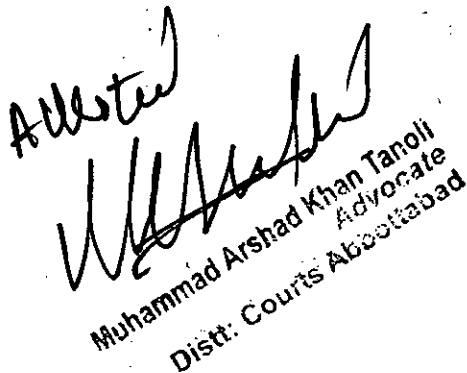 Attested
Muhammad Arshad Khan Tanoli
Advocate
Distt: Courts Abbottabad